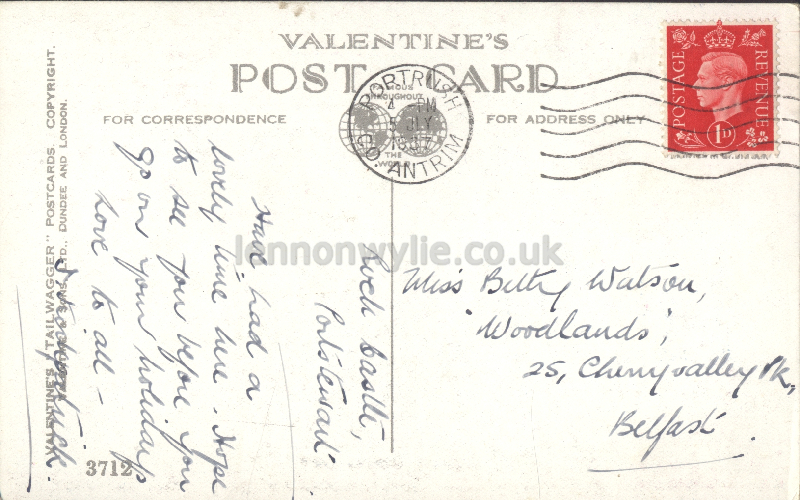 VALENTINE'S
POST CARD
FAMOUS
THROUGHOUT
THE
WORLD
FOR CORRESPONDENCE
FOR ADDRESS ONLY
PORTRUSH
4 PM
5 JLY
CO. ANTRIM
POSTAGE
REVENUE
1D
lennonwylie.co.uk
Rock Castle,
Portstewart
Have had a
lovely time here. Hope
to see you before you
go on your holidays
Love to all —
Miss Betty Watson,
"Woodlands",
25, Cherryvalley Pk,
Belfast.
VALENTINE'S "TAILWAGGER" POSTCARDS. COPYRIGHT.
VALENTINE & SONS, LTD., DUNDEE AND LONDON.
3712